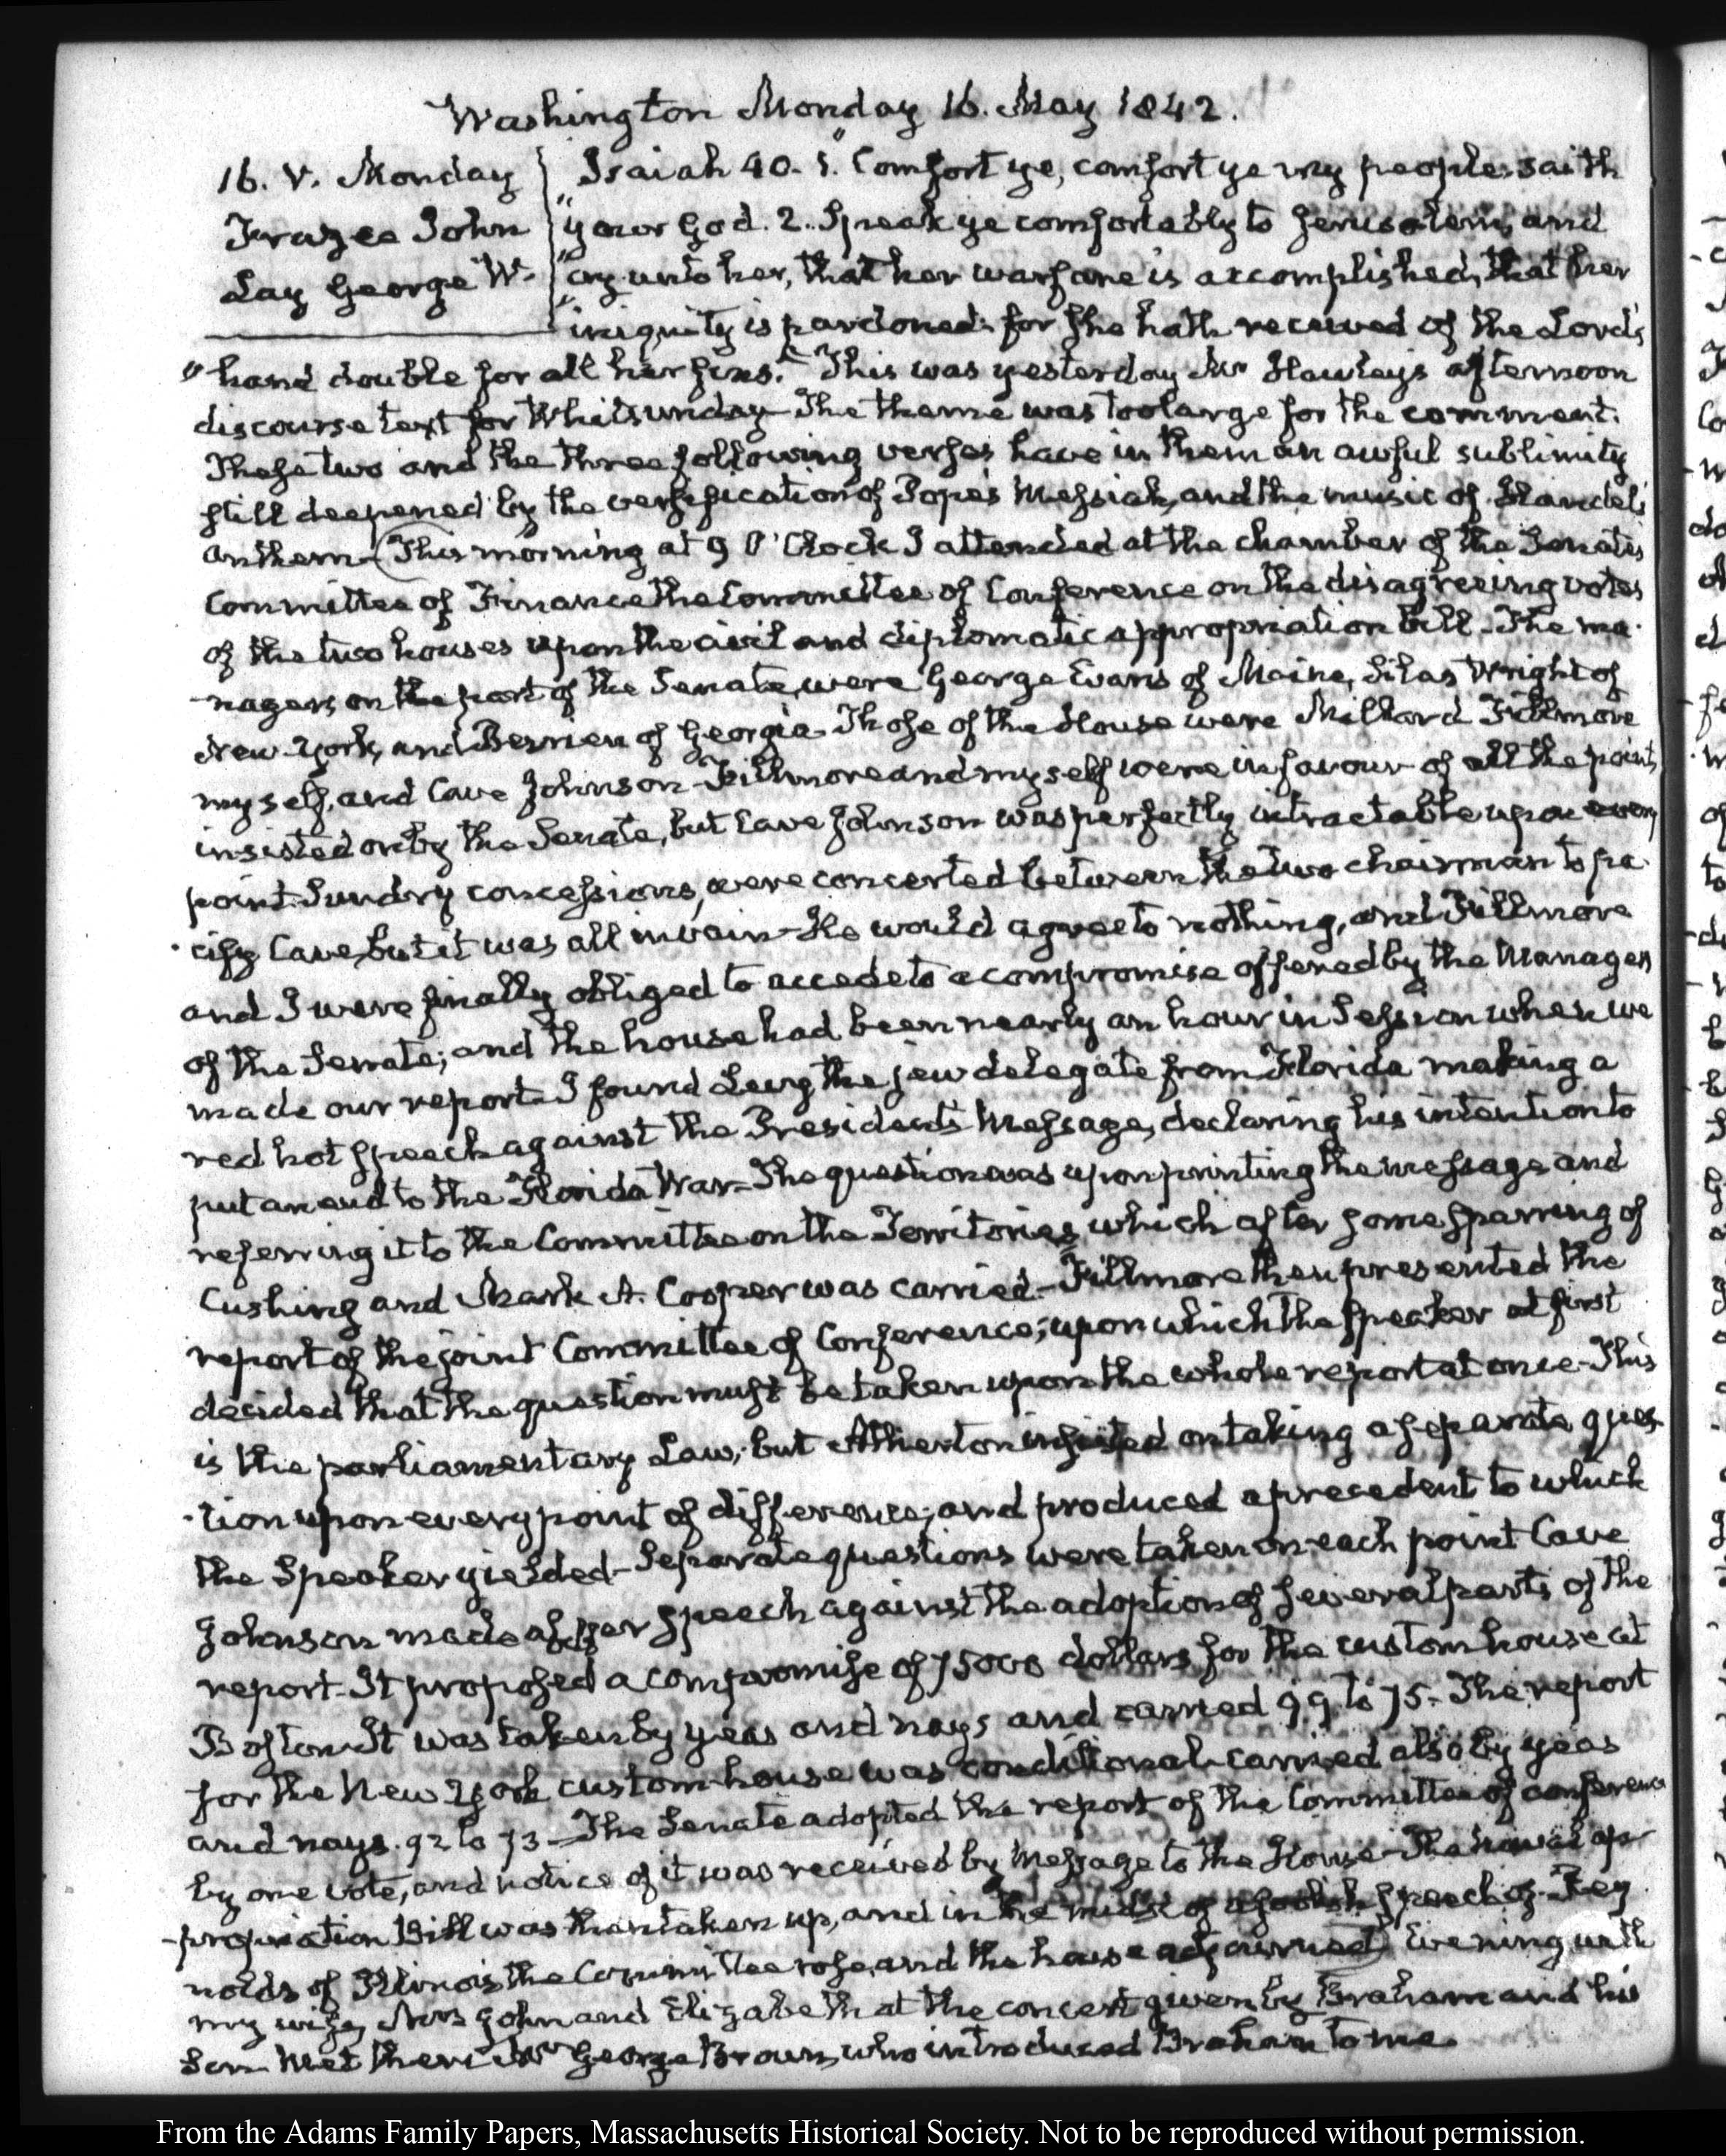 Washington Monday 16. May 1842.
16. V. Monday
Frazee John
Lay George W.
Isaiah 40. 1. "Comfort ye, comfort ye my people, saith
"your God. 2. Speak ye comfortably to Jerusalem, and
"cry unto her, that her warfare is accomplished, that her
"iniquity is pardoned: for she hath received of the Lord's
"hand double for all her sins." This was yesterday Mr Hawley's afternoon
discourse text for Whitsunday—The theme was too large for the comment.
These two and the three following verses have in them an awful sublimity
still deepened by the versification of Pope's Messiah, and the music of Handel's
anthem—(This morning at 9 O'Clock I attended at the chamber of the Senate's
Committee of Finance the Committee of Conference on the disagreeing votes
of the two houses upon the civil and diplomatic appropriation bill—The ma-
-nagers on the part of the Senate, were George Evans of Maine, Silas Wright of
New-York, and Berrien of Georgia—Those of the House were Millard Fillmore
myself, and Cave Johnson—Fillmore and myself were in favour of all the points
insisted on by the Senate, but Cave Johnson was perfectly intractable upon every
point. Sundry concessions, were concerted between the two chairman to pa-
-cify Cave, but it was all in vain—He would agree to nothing, and Fillmore
and I were finally obliged to accede to a compromise offered by the Managers
of the Senate; and the house had been nearly an hour in Session when we
made our report—I found Levy the jew delegate from Florida making a
red hot speech against the President's Message, declaring his intention to
put an end to the Florida War—The question was upon printing the message and
referring it to the Committee on the Territories, which after some sparring of
Cushing and Mark A. Cooper was carried—Fillmore then presented the
report of the joint Committee of Conference; upon which the Speaker at first
decided that the question must be taken upon the whole report at once—This
is the parliamentary Law; but Atherton insisted on taking a separate ques-
-tion upon every point of difference; and produced a precedent to which
the Speaker yielded—Separate questions were taken on each point Cave
Johnson made a speech against the adoption of several parts of the
report—It proposed a compromise of 75000 dollars for the custom house at
Boston—It was taken by yeas and nays and carried 99 to 75—The report
for the New York custom-house was conditional—carried also by yeas
and nays. 92 to 73—The Senate adopted the report of the Committee of conference
by one vote, and notice of it was received by Message to the House—The naval ap-
-propriation Bill was then taken up, and in the midst of a foolish speech of Rey-
nolds of Illinois the Committee rose, and the house adjourned) Evening with
my wife, Mrs John and Elizabeth at the concert given by Braham and his
Son—Met there Mr George Brown, who introduced Braham to me.
From the Adams Family Papers, Massachusetts Historical Society. Not to be reproduced without permission.